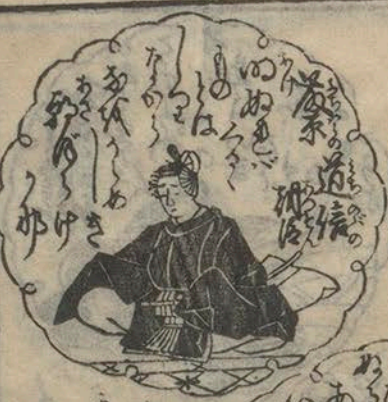 藤原道信朝臣
明ぬれば
くるゝ
ものとは
しり
ながら
なほうらめ
しき
朝ぼらけ
かな